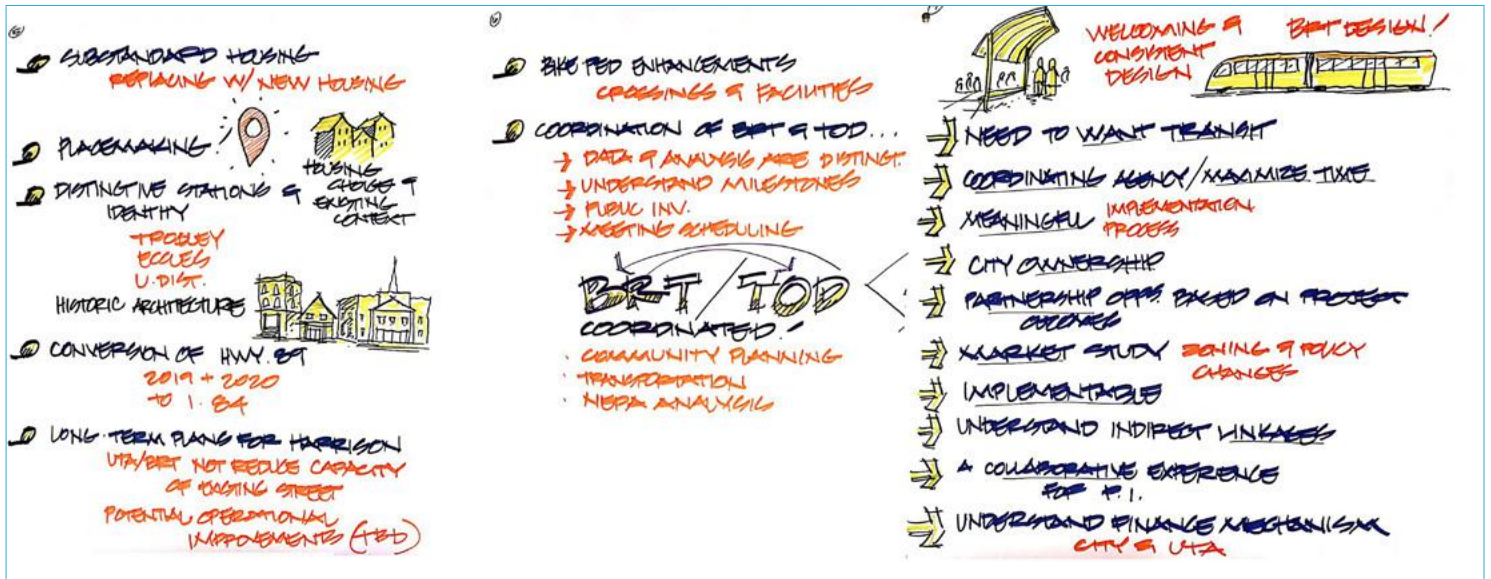 5
SUBSTANDARD HOUSING
REPLACING W/ NEW HOUSING
PLACEMAKING
HOUSING
CHOICE &
EXISTING
CONTEXT
DISTINCTIVE STATIONS &
IDENTITY
TROLLEY
ECCLES
U. DIST.
HISTORIC ARCHITECTURE
CONVERSION OF HWY. 89
2019 + 2020
TO I-84
LONG-TERM PLANS FOR HARRISON
UTA/BRT NOT REDUCE CAPACITY
OF EXISTING STREET
POTENTIAL OPERATIONAL
IMPROVEMENTS (TBD)
6
BIKE PED ENHANCEMENTS
CROSSINGS & FACILITIES
COORDINATION OF BRT & TOD...
→ DATA & ANALYSIS ARE DISTINCT.
→ UNDERSTAND MILESTONES
→ PUBLIC INV.
→ MEETING SCHEDULING
BRT / TOD
COORDINATED!
· COMMUNITY PLANNING
· TRANSPORTATION
· NEPA ANALYSIS
WELCOMING &
CONSISTENT
DESIGN
BRT DESIGN!
NEED TO WANT TRANSIT
COORDINATING AGENCY/MAXIMIZE TIME
MEANINGFUL IMPLEMENTATION
PROCESS
CITY OWNERSHIP
PARTNERSHIP OPPS. BASED ON PROJECT
OUTCOMES
MARKET STUDY ZONING & POLICY
CHANGES
IMPLEMENTABLE
UNDERSTAND INDIRECT LINKAGES
A COLLABORATIVE EXPERIENCE
FOR P.I.
UNDERSTAND FINANCE MECHANISM
CITY & UTA